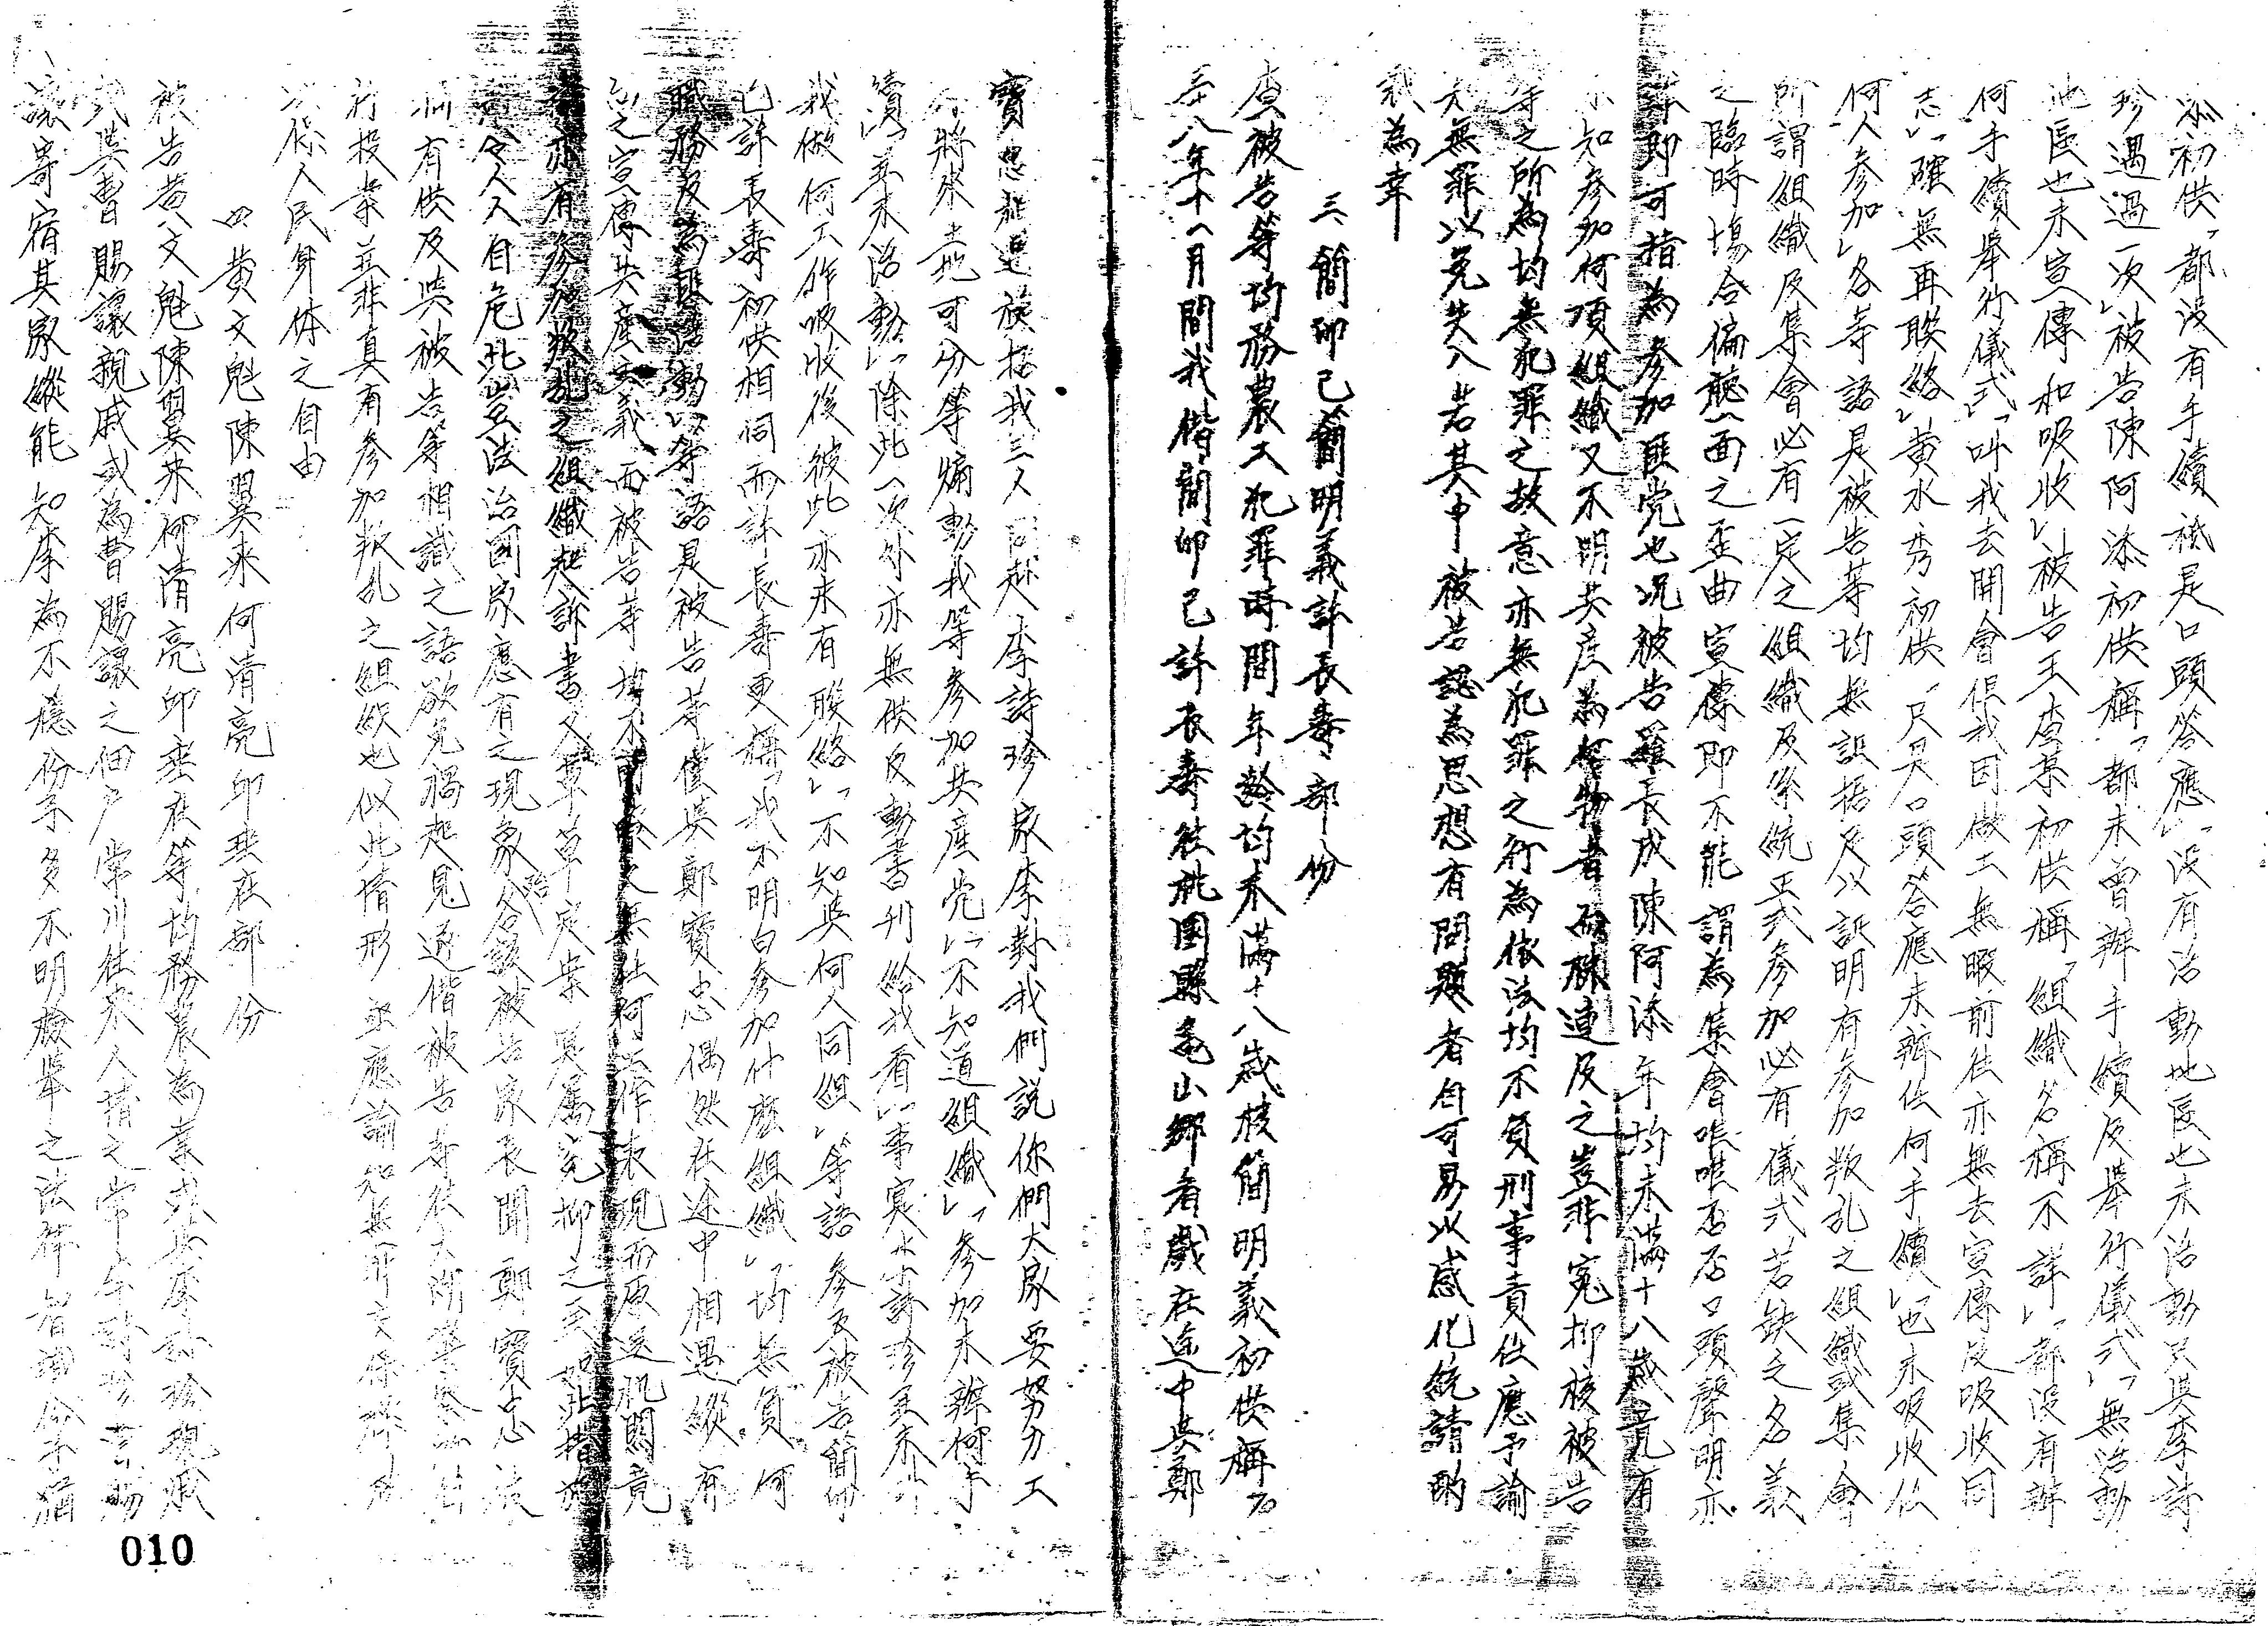 添初供「都没有手續祇是口頭答應」「没有活動地區也未活動只與李詩
珍遇過一次」被告陳阿添初供稱「都未曾辦手續及舉行儀式」「無活動
地區也未宣傳和吸收」被告王查某初供稱「組織名稱不詳」「都没有辦
何手續舉行儀式」「叫我去開會但我因做工無暇前往亦無去宣傳及吸收同
志」「確無再聯絡」黃水秀初供「只是口頭答應未辦任何手續」「也未吸收任
何人參加」各等語是被告等均無証据足以証明有參加叛乱之組織或集會
所謂組織及集會必有一定之組織及系統正式參加必有儀式若缺之名義
之臨時場合偏聽一面之歪曲宣傳即不能謂為集會唯唯否否口頭聲明亦
即可指為參加匪党也况被告羅長成陳阿添年均未滿十八歲竟有
不知參加何項組織又不明共產為何物者而株連及之豈非冤抑核被告
等之所為均無犯罪之故意亦無犯罪之行為依法均不負刑事責任應予諭
知無罪以免失入若其中被告認為思想有問題者自可易以感化統請酌
裁為幸
三、簡卯己簡明義許長壽部份
查被告等均務農工犯罪時間年齡均未滿十八歲核簡明義初供稱
卅八年十一月間我偕簡卯己許長壽往桃園縣龜山鄉看戲在途中與鄭
寶忠 我三人同赴李詩珍家李對我們說你們大家要努力工
將來土地可分等煽動我等參加共產党」「不知道組織」「參加未辦何手
續」「並未活動」「除此一次外亦無供反動書刊給我看」「事實上許珍並未
我做何工作吸收後彼此亦未有聯絡」「不知與何人同組」等語參及被告簡卯
己許長壽初供相同而許長壽更稱「我不明白參加什麼組織」「均無負何
職務及為匪活動」等語是被告等僅與鄭寶忠偶然在途中相遇縱有
之宣傳共產主義而被告等均不 無任何工作表現而原送机關竟
亦有參加叛乱之組織起訴書又草草定案實屬冤抑之至 措施
令人人自危此豈法治國家應有之現象 該被告家長聞鄭寶忠
有供及與被告等相識之語欲免禍起見遂偕被告等往
行投案並非真有參加叛乱之組織也似此情形並應諭知無罪
以保人民身体之自由
四、黃文魁陳翼來何清亮卯 在部份
被告黃文魁陳翼來何清亮 在等均務農為業或
或與曹賜讓親戚或為曹賜讓之佃户常川往來人情之常
讓寄宿其家縱能知李為不穩份子多不明檢舉之法律
010